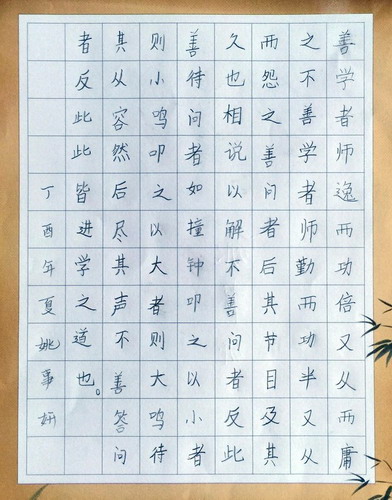 善学者师逸而功倍又从而庸
之不善学者师勤而功半又从
而怨之善问者后其节目及其
久也相说以解不善问者反此
善待问者如撞钟叩之以小者
则小鸣叩之以大者则大鸣待
其从容然后尽其声不善答问
者反此此皆进学之道也。
丁酉年夏姚事妍